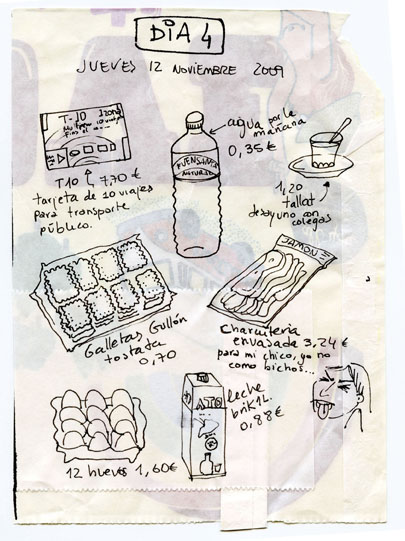 DIA 4
JUEVES 12 NOVIEMBRE 2009
T-10 1zona
T10 7,70 €
tarjeta de 10 viajes
para transporte
público.
FUENSANTA
NATURAL
agua por la
mañana
0,35 €
1,20
tallat
desayuno con
colegas
Galletas Gullón
tostada
0,70
JAMON
Charcutería
envasada 3,24 €
para mi chico, yo no
como bichos...
12 huevos 1,60€
ATO
leche
brik 1L.
0,88€